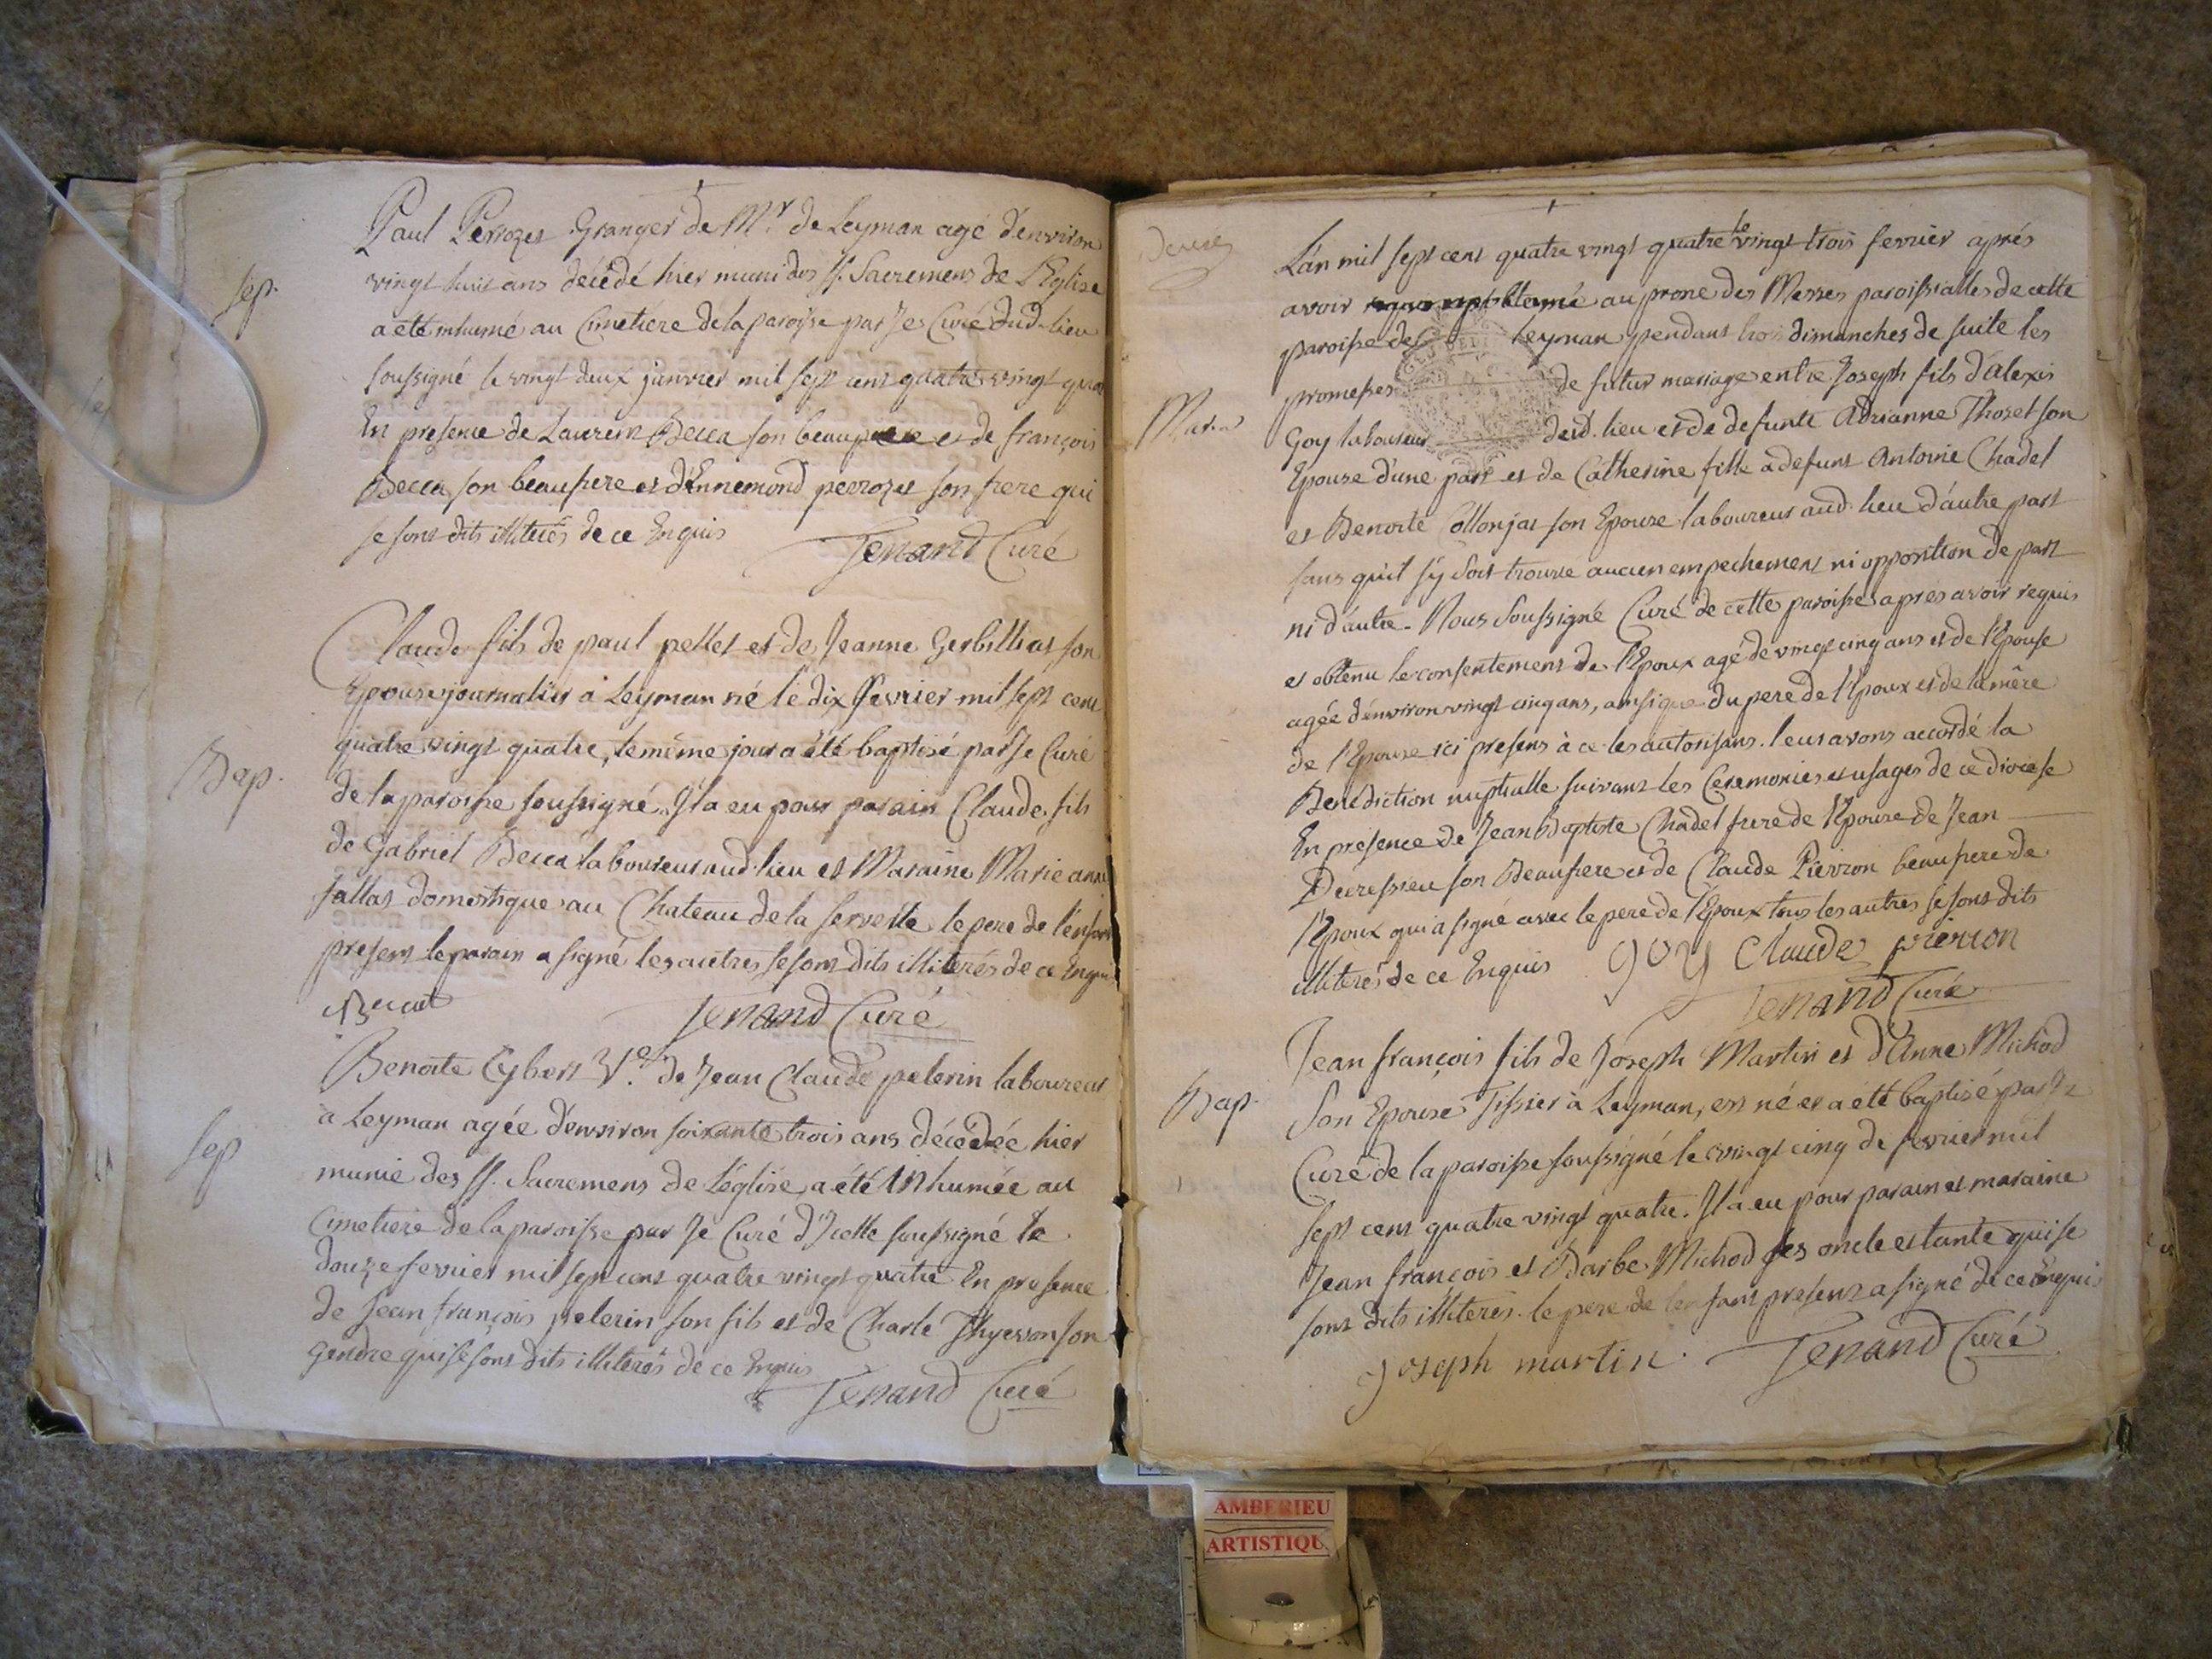 Paul Perrozet Granger de Mr. de Leyman agé d'environ
Sep.
vingt huit ans décédé hier muni des SS. Sacremens de l'Eglise
a eté inhumé au Cimetiére de la paroisse par Je Curé dud. lieu
soussigné le vingt deux janvier mil sept cent quatre vingt
En presence de Laurent Becca son beaupere et de françois
Becca son beaufrere et d'Ennemond perrozet son frere qui
se sont dits illiterés de ce Enquis Tenand Curé
Claude fils de paul pellet et de Jeanne son
Epouse journalier a Leyman né le dix fevrier mil sept cent
quatre vingt quatre, le même jour a été baptisé par Je Curé
Bap.
de la paroisse soussigné. Il a eu pour parain Claude fils
de Gabriel Becca laboureur aud. lieu et Maraine Marie anne
fallat domestique au Chateau de la servette le pere de l'enfant
present le parain a signé les autres se sont dits illiterés de ce Enquis
Tenand Curé
Benoite Cybert Ve. de Jean Claude pelerin laboureur
a Leyman agée d'environ soixante trois ans décedée hier
Sep
munie des SS. Sacremens de l'église a été inhumée au
Cimetiere de la paroisse par Je Curé d'Icelle soussigné le
douze fevrier mil sept cent quatre vingt quatre En presence
de Jean françois pelerin son fils et de Charle Thyevon son
gendre qui se sont dits illiterés de ce Enquis
Tenand Curé
L'an mil sept cent quatre vingt quatre le vingt trois fevrier aprés
avoir au prone des Messes paroissialles de cette
paroisse de Leyman pendant trois dimanches de suite les
promesses de futur mariage entre Joseph fils d'alexis
Mar.
Goy laboureur dud. lieu et de defunte Adrianne Thozet son
Epouse d'une part et de Catherine fille a defunt Antoine Chadel
et Benoite Collonjat son Epouse laboureur aud. lieu d'autre part
sans qu'il s'y soit trouvé aucun empechement ni opposition de part
ni d'autre. Nous soussigné Curé de cette paroisse aprés avoir requis
et obtenu le consentement de l'Epoux agé de vingt cinq ans et de l'Epouse
agée d'environ vingt cinq ans, ainsi que du pere de l'Epoux et de la mère
de l'Epouse ici presens à ce les autorisans. leur avons accordé la
Benediction nuptialle suivant les Ceremonies et usages de ce diocese
En présence de Jean Baptiste Chadel frere de l'Epouse de Jean
Decressieu son Beaufrere et de Claude Pierron beaufrere de
l'Epoux qui a signé avec le pere de l'Epoux tous les autres se sont dits
illiterés de ce Enquis goy Claude pierron
Tenand Curé
Jean françois fils de Joseph Martin et d'Anne Michod
Bap.
Son Epouse Tissier à Leyman, est né et a été baptisé par Je
Curé de la paroisse soussigné le vingt cinq de fevrier mil
sept cent quatre vingt quatre. Il a eu pour parain et maraine
Jean françois et Barbe Michod ses oncle et tante qui se
sont dits illiterés. le pere de l'enfant present a signé de ce Enquis
Joseph martin. Tenand Curé
AMBERIEU
ARTISTIQU